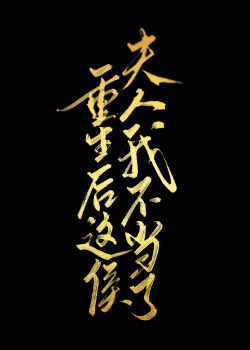 重生后这侯
夫人我不当了